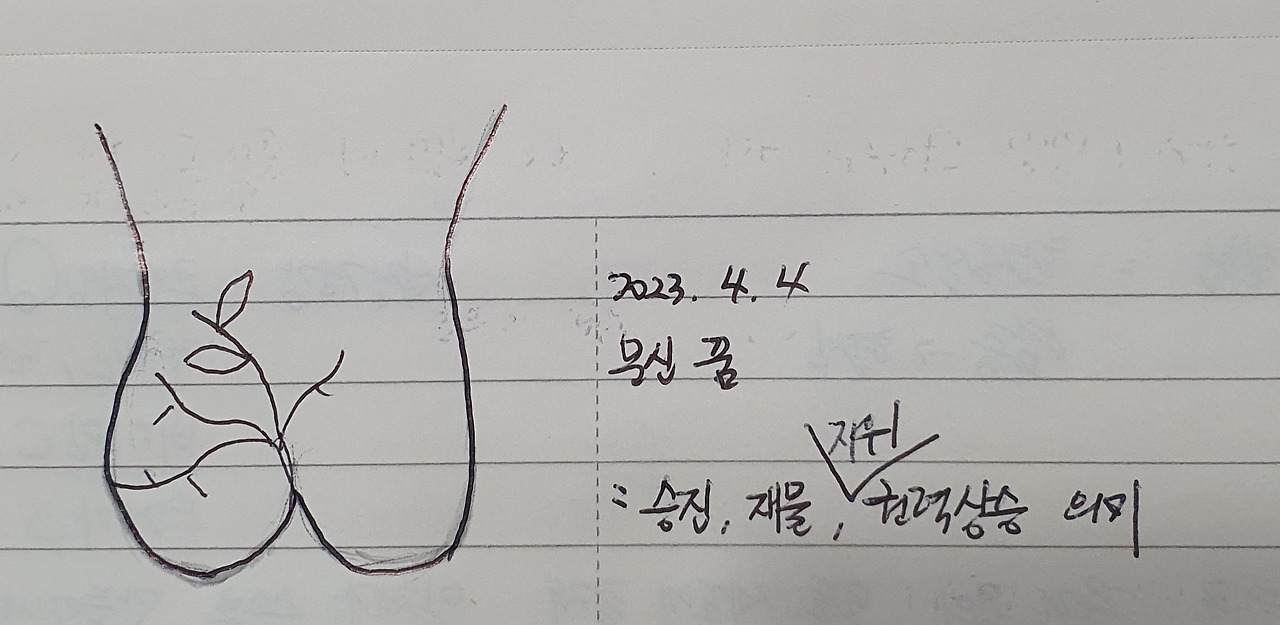 2023. 4. 4
문신 꿈
지위
: 승진, 재물, 권력상승 의미